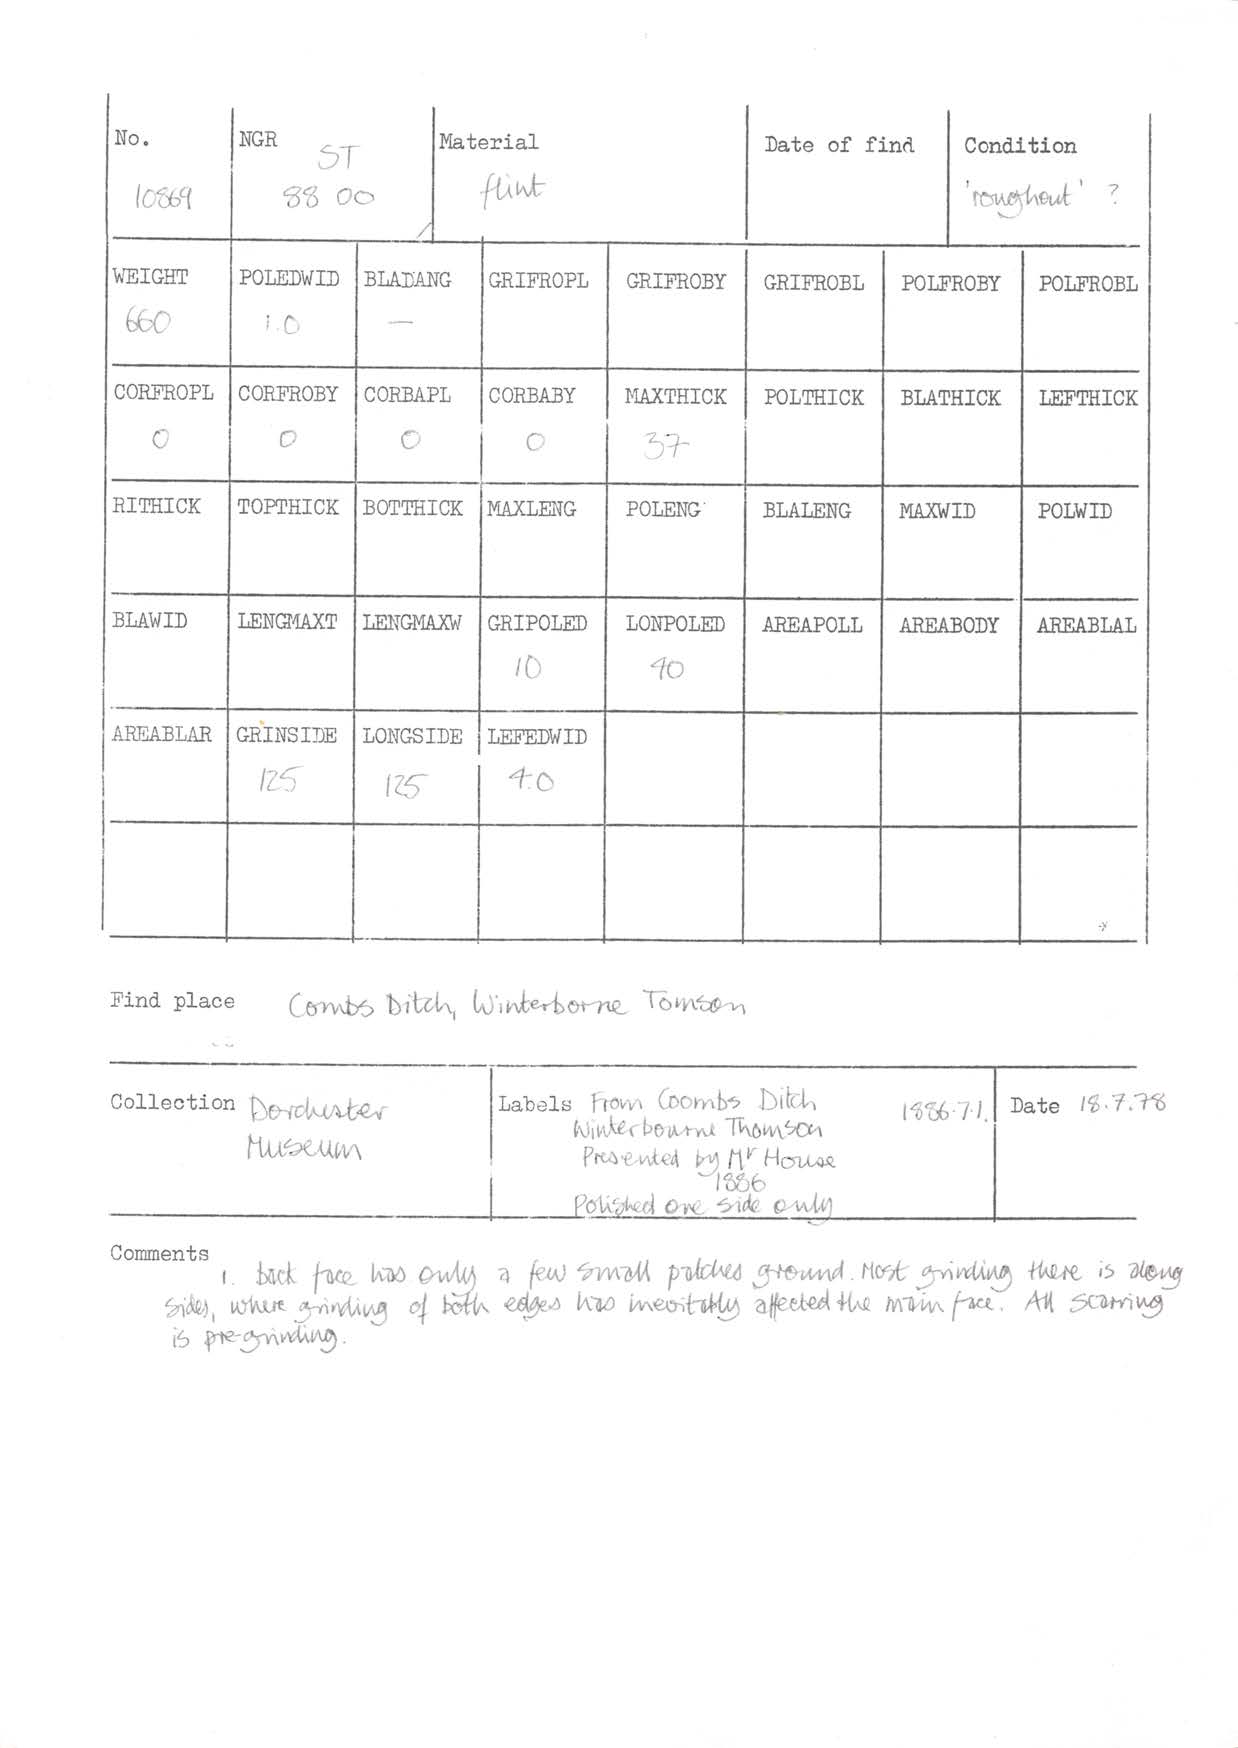 No. NGR Material Date of find Condition
ST
10869 88 00 flint 'roughout' ?
WEIGHT POLEDWID BLADANG GRIFROPL GRIFROBY GRIFROBL POLFROBY POLFROBL
660 1.0 —
CORFROPL CORFROBY CORBAPL CORBABY MAXTHICK POLTHICK BLATHICK LEFTHICK
0 0 0 0 37
RITHICK TOPTHICK BOTTHICK MAXLENG POLENG BLALENG MAXWID POLWID
BLAWID LENGMAXT LENGMAXW GRIPOLED LONPOLED AREAPOLL AREABODY AREABLAL
10 40
AREABLAR GRINSIDE LONGSIDE LEFEDWID
125 125 4.0
Find place Combs Ditch, Winterborne Tomson
Collection Dorchester Museum
Labels From Coombs Ditch 1886.7.1.
Winterbourne Thomson
Presented by Mr House
1886
Polished one side only
Date 18.7.78
Comments
1. back face has only a few small patches ground. Most grinding there is along
sides, where grinding of both edges has inevitably affected the main face. All scarring
is pre-grinding.